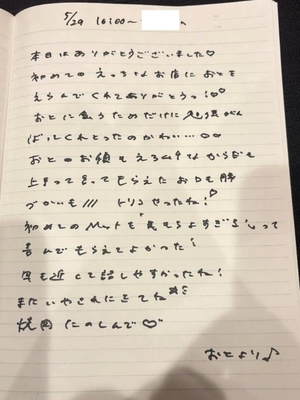 5/29 16:00〜
本日はありがとうございました♡
初めてのえっちなお店におとを
えらんでくれてありがとうっ!♡
おとに会うためだけに勉強がん
ばってくれとったのかわいい…♡♡
おとのお顔もえろ なからだも
上手って言ってもらえたお口も腰
づかいも/// トリコやったね!♡
初めてのMatも気もちよすぎる〜って
喜んでもらえてよかった!
年も近くて話しやすかったね!
またいやされにきてね
焼肉たのしんで♡
おとより♪